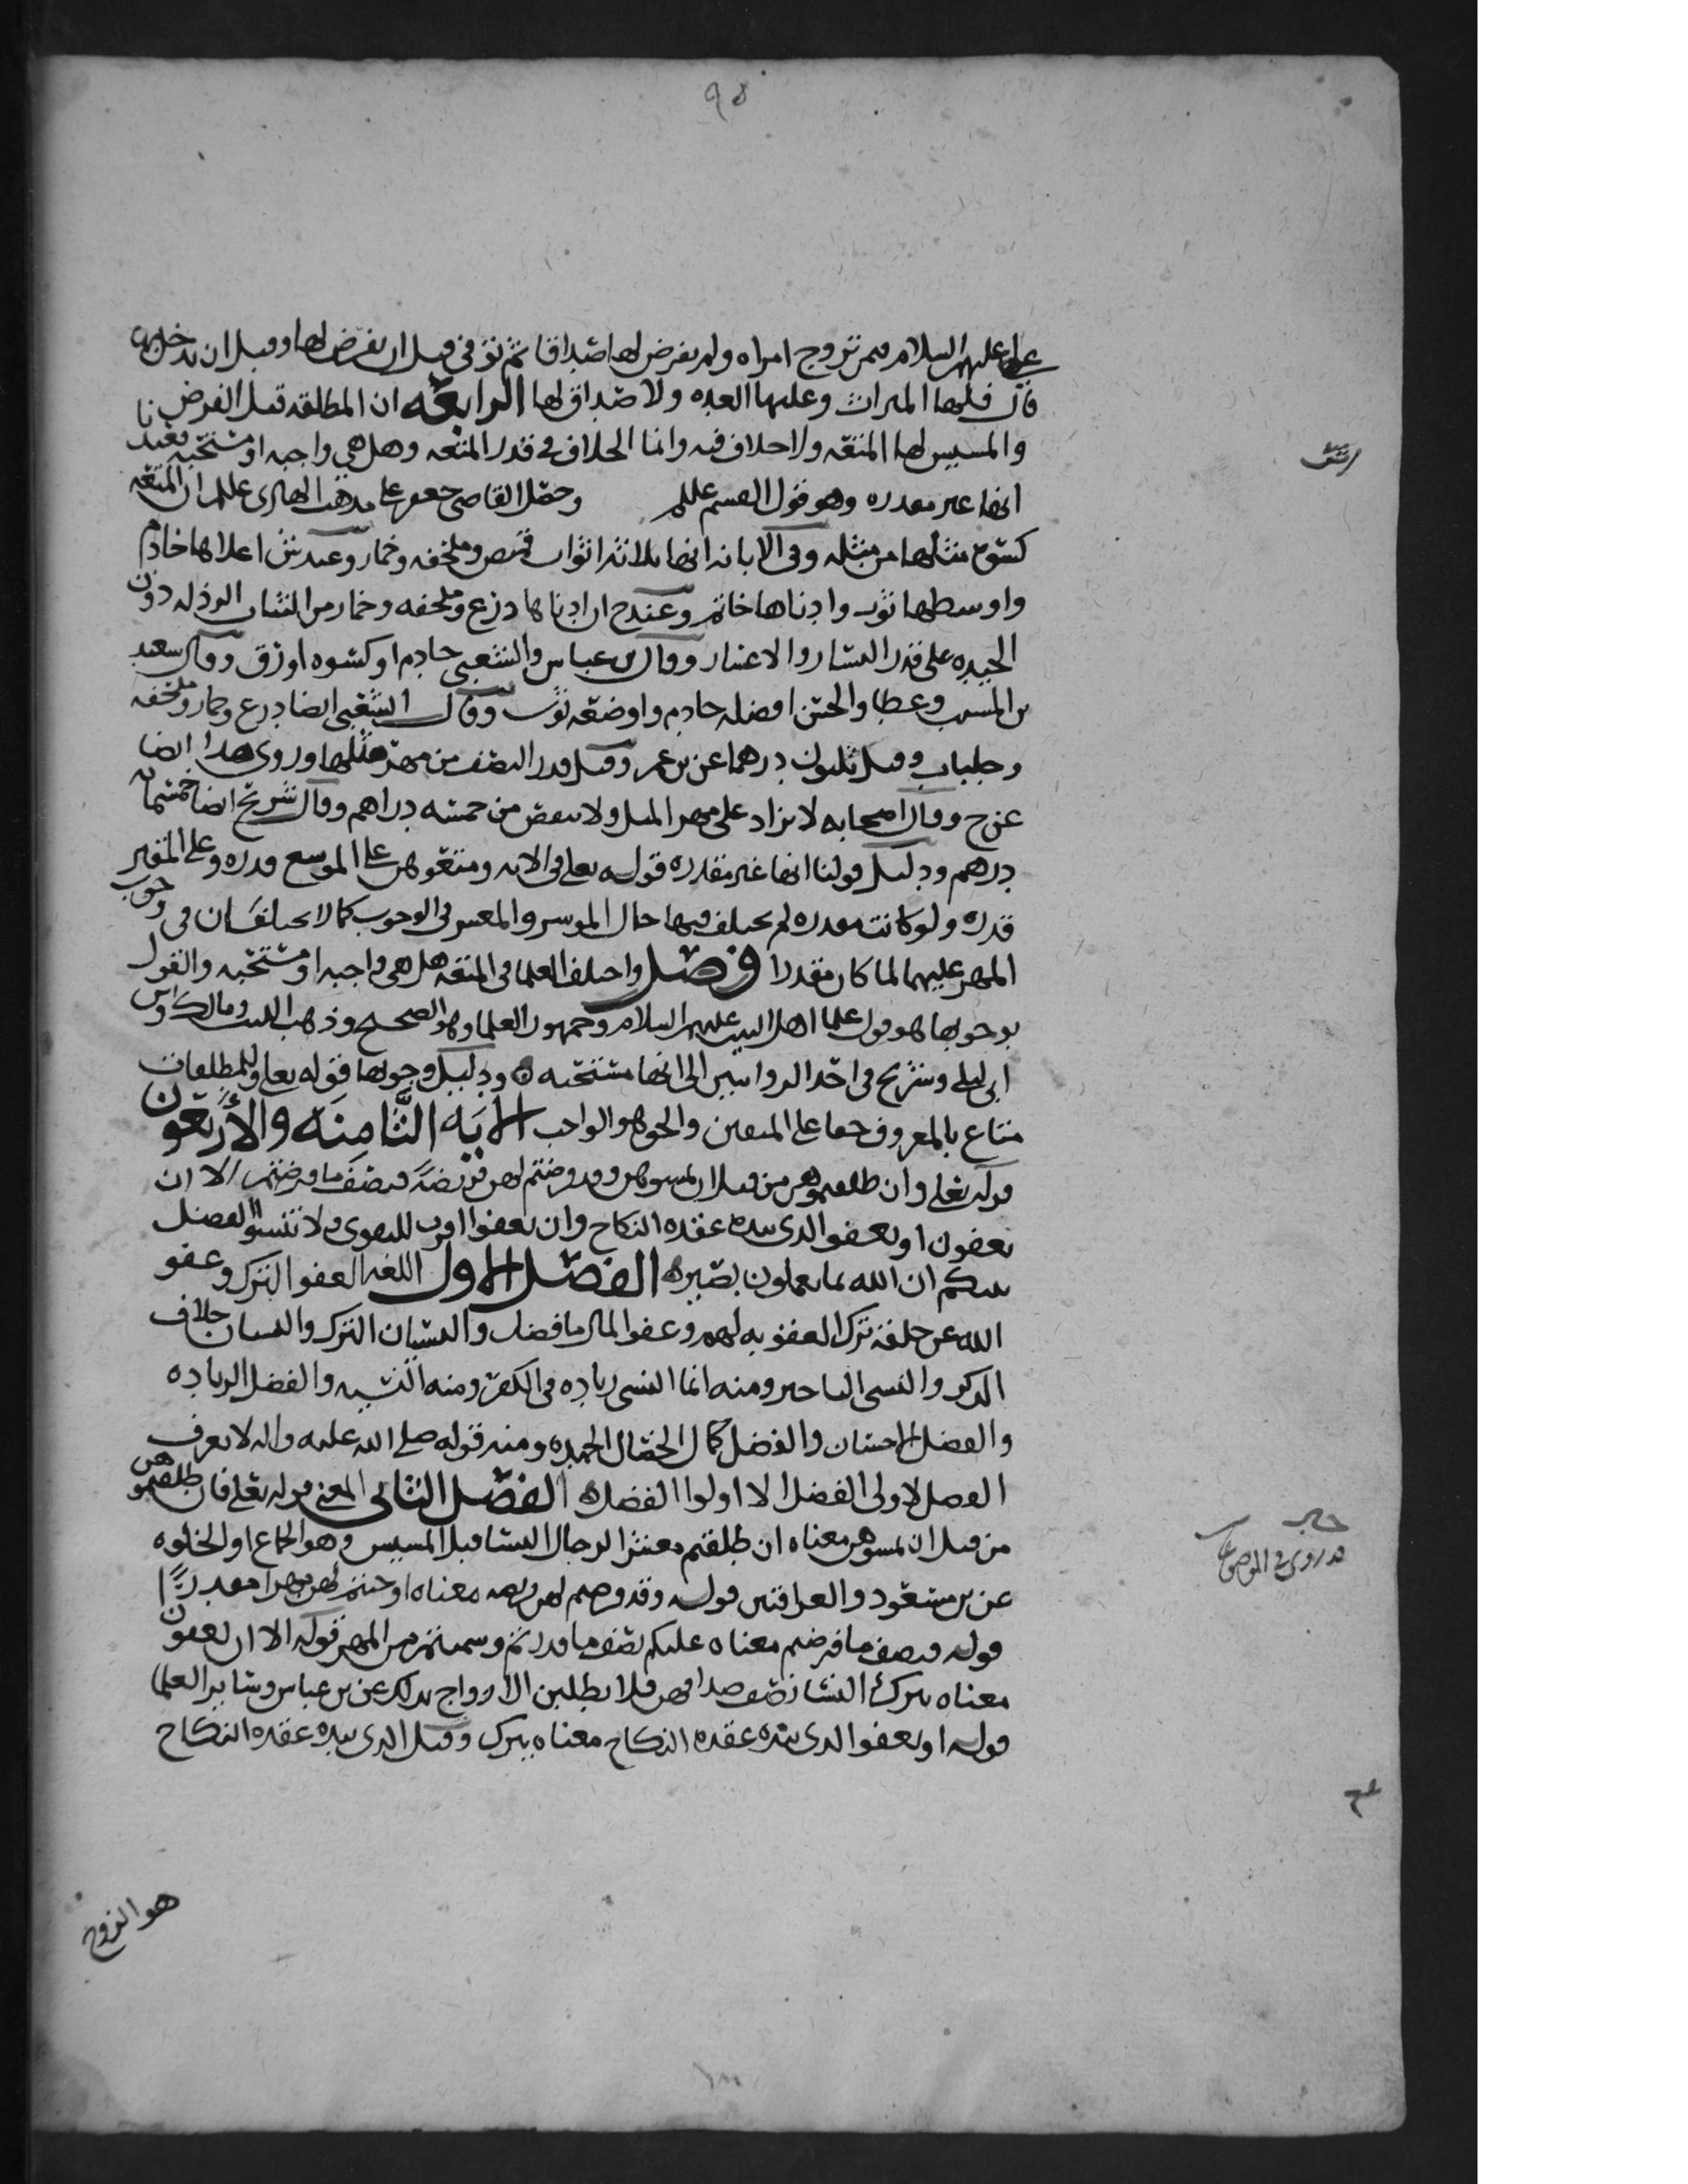 ٩٥
علي عليهم السلام فيمن تزوج امراه ولم يفرض لها صداقا ثم توفى قبل ان يفرض لها وقبل ان يدخل بها
قال فلها الميراث وعليها العده ولا صداق لها الرابعه ان المطلقه قبل الفرض
والمسيس لها المتعه ولا خلاف فيه وانما الخلاف في قدر المتعه وهل هي واجبه او مستحبه فعندنا
انها غير مقدره وهو قول القسم عللم وحصل القاضي جعفر على مذهب الهادي عللم ان المتعه
كسوة مثلها من مثله وفي الابانه انها ثلاثه اثواب قميص وملحفه وخمار وعند ش اعلاها خادم
واوسطها ثوب وادناها خاتم وعند ح ان ادناها درع وملحفه وخمار من الثياب الرذله دون
الجيده على قدر اليسار والاعسار وقال بن عباس والشعبي خادم او كسوه او رزق وقال سعيد
بن المسيب وعطا والحسن افضله خادم واوضعه ثوب وقال الشعبي ايضا درع وخمار وملحفه
وجلباب وقيل ثلثون درهما عن بن عمر وقيل قدر النصف من مهر مثلها وروي هذا ايضا
عن ح وقال اصحابه لا يزاد على مهر المثل ولا ينقص من خمسه دراهم وقال شريح ايضا خمسمائه
درهم ودليل قولنا انها غير مقدره قوله تعلى في الايه ومتعوهن على الموسع قدره وعلى المقتر
قدره ولو كانت مقدره لم يختلف فيها حال الموسر والمعسر في الوجوب كما لا يختلفان في وجوب
المهر عليهما لما كان مقدرا فصل واختلف العلما في المتعه هل هي واجبه او مستحبه والقول
بوجوبها هو قول علما اهل البيت عليهم السلام وجمهور العلما وهو الصحيح وذهب الليث ومالك وابن
ابي ليلى وشريح في احد الروايتين الى انها مستحبه ودليل وجوبها قوله تعلى وللمطلقات
متاع بالمعروف حقا على المتقين والحق هو الواجب الايَه الثَّامِنَه والأَرْبَعُون
قوله تعلى وان طلقتموهن من قبل ان تمسوهن وقد فرضتم لهن فريضةً فنصف ما فرضتم الا ان
يعفون او يعفو الذي بيده عقده النكاح وان تعفوا اقرب للتقوى ولا تنسوا الفضل
بينكم ان الله بما تعملون بصيره الفصل الاول اللغه العفو الترك وعفو
الله عن خلقه ترك العقوبه لهم وعفو المال ما فضل والنسيان الترك والنسيان خلاف
الذكر والنسى التاخير ومنه انما النسى زياده في الكفر ومنه النسيه والفضل الزياده
والفضل الاحسان والفضل كمال الخصال الحميده ومنه قوله صلى الله عليه واله لا يعرف
الفضل لاولي الفضل الا اولوا الفضل الفصل الثاني المعنى قوله تعلى فان طلقتموهن
من قبل ان تمسوهن معناه ان طلقتم معشر الرجال النسا قبل المسيس وهو الجماع او الخلوه
عن بن مسعود والعراقيين قوله وقد فرضتم لهن فريضه معناه اوجبتم لهن مهرا مقدرًا
قوله فنصف ما فرضتم معناه عليكم نصف ما قدرتم وسميتم من المهر قوله الا ان يعفون
معناه يترك النسا نصف صداقهن فلا يطلبن الازواج بذلك عن بن عباس وسائر العلما
قوله او يعفو الذي بيده عقده النكاح معناه يترك وقيل الذي بيده عقده النكاح
قد روي في
هو الزوج